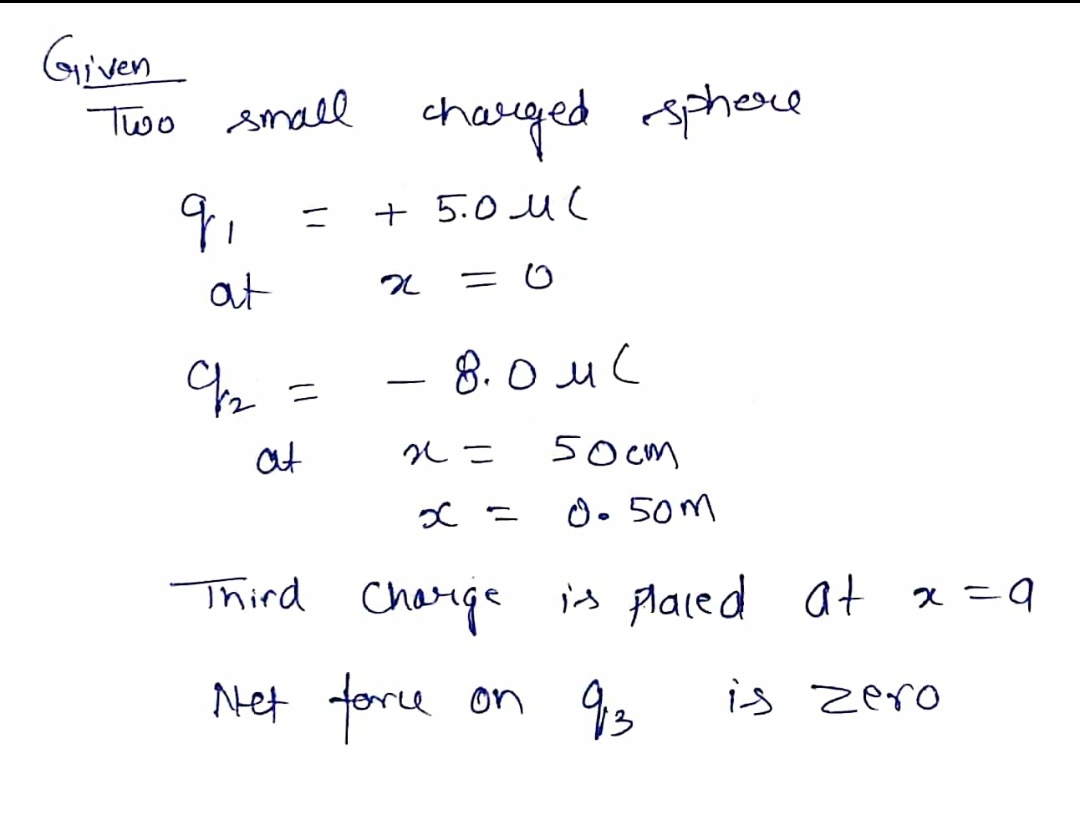 Given
Two small charged sphere
q₁ = + 5.0 μC
at x = 0
q₂ = - 8.0 μC
at x = 50cm
x = 0.50m
Third Charge is placed at x = a
Net force on q₃ is zero